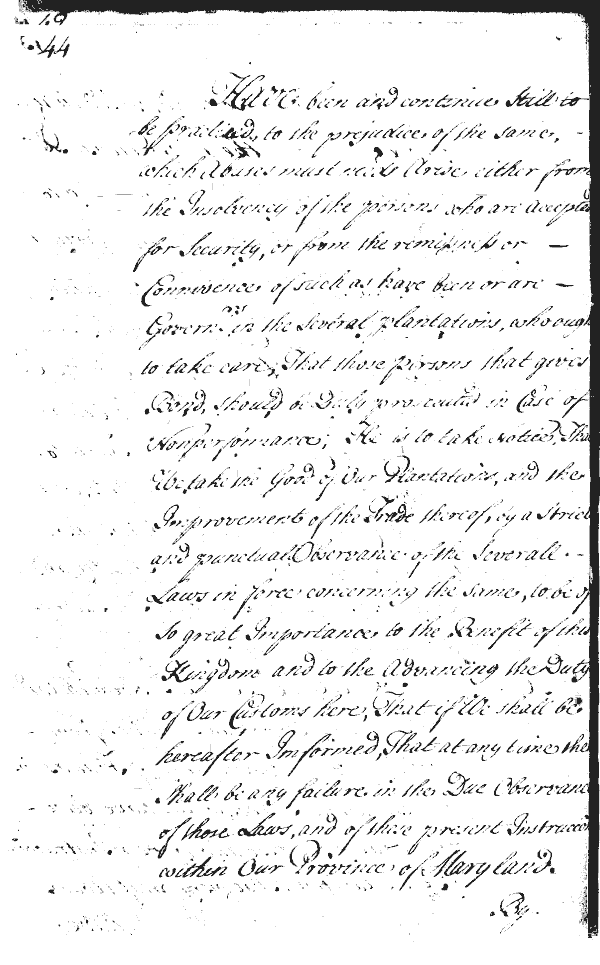 44
Have been and continue still to
be practised, to the prejudice of the same,
which Abuses must needs Arise either from
the Insolvency of the persons who are Accepted
for Security, or from the remissness or —
Connivence of such as have been or are —
Govern.rs in the Several plantations, who ough
to take care, That those persons that gives
Bond, should be Duly prosecuted in Case of
Nonperformance; He is to take notice, Tha
We take the Good of Our Plantations, and the
Improvement of the Trade thereof, by a Strict
and punctuall Observance of the Severall -
Laws in force concerning the same, to be of
so great Importance to the Benefit of this
Kingdom and to the Advancing the Duty
of Our Customs here, That if We shall be
hereafter Informed, That at any time the
shall be any failure in the Due Observanc
of those Laws, and of these present Instruccon
within Our Province of Maryland.
By